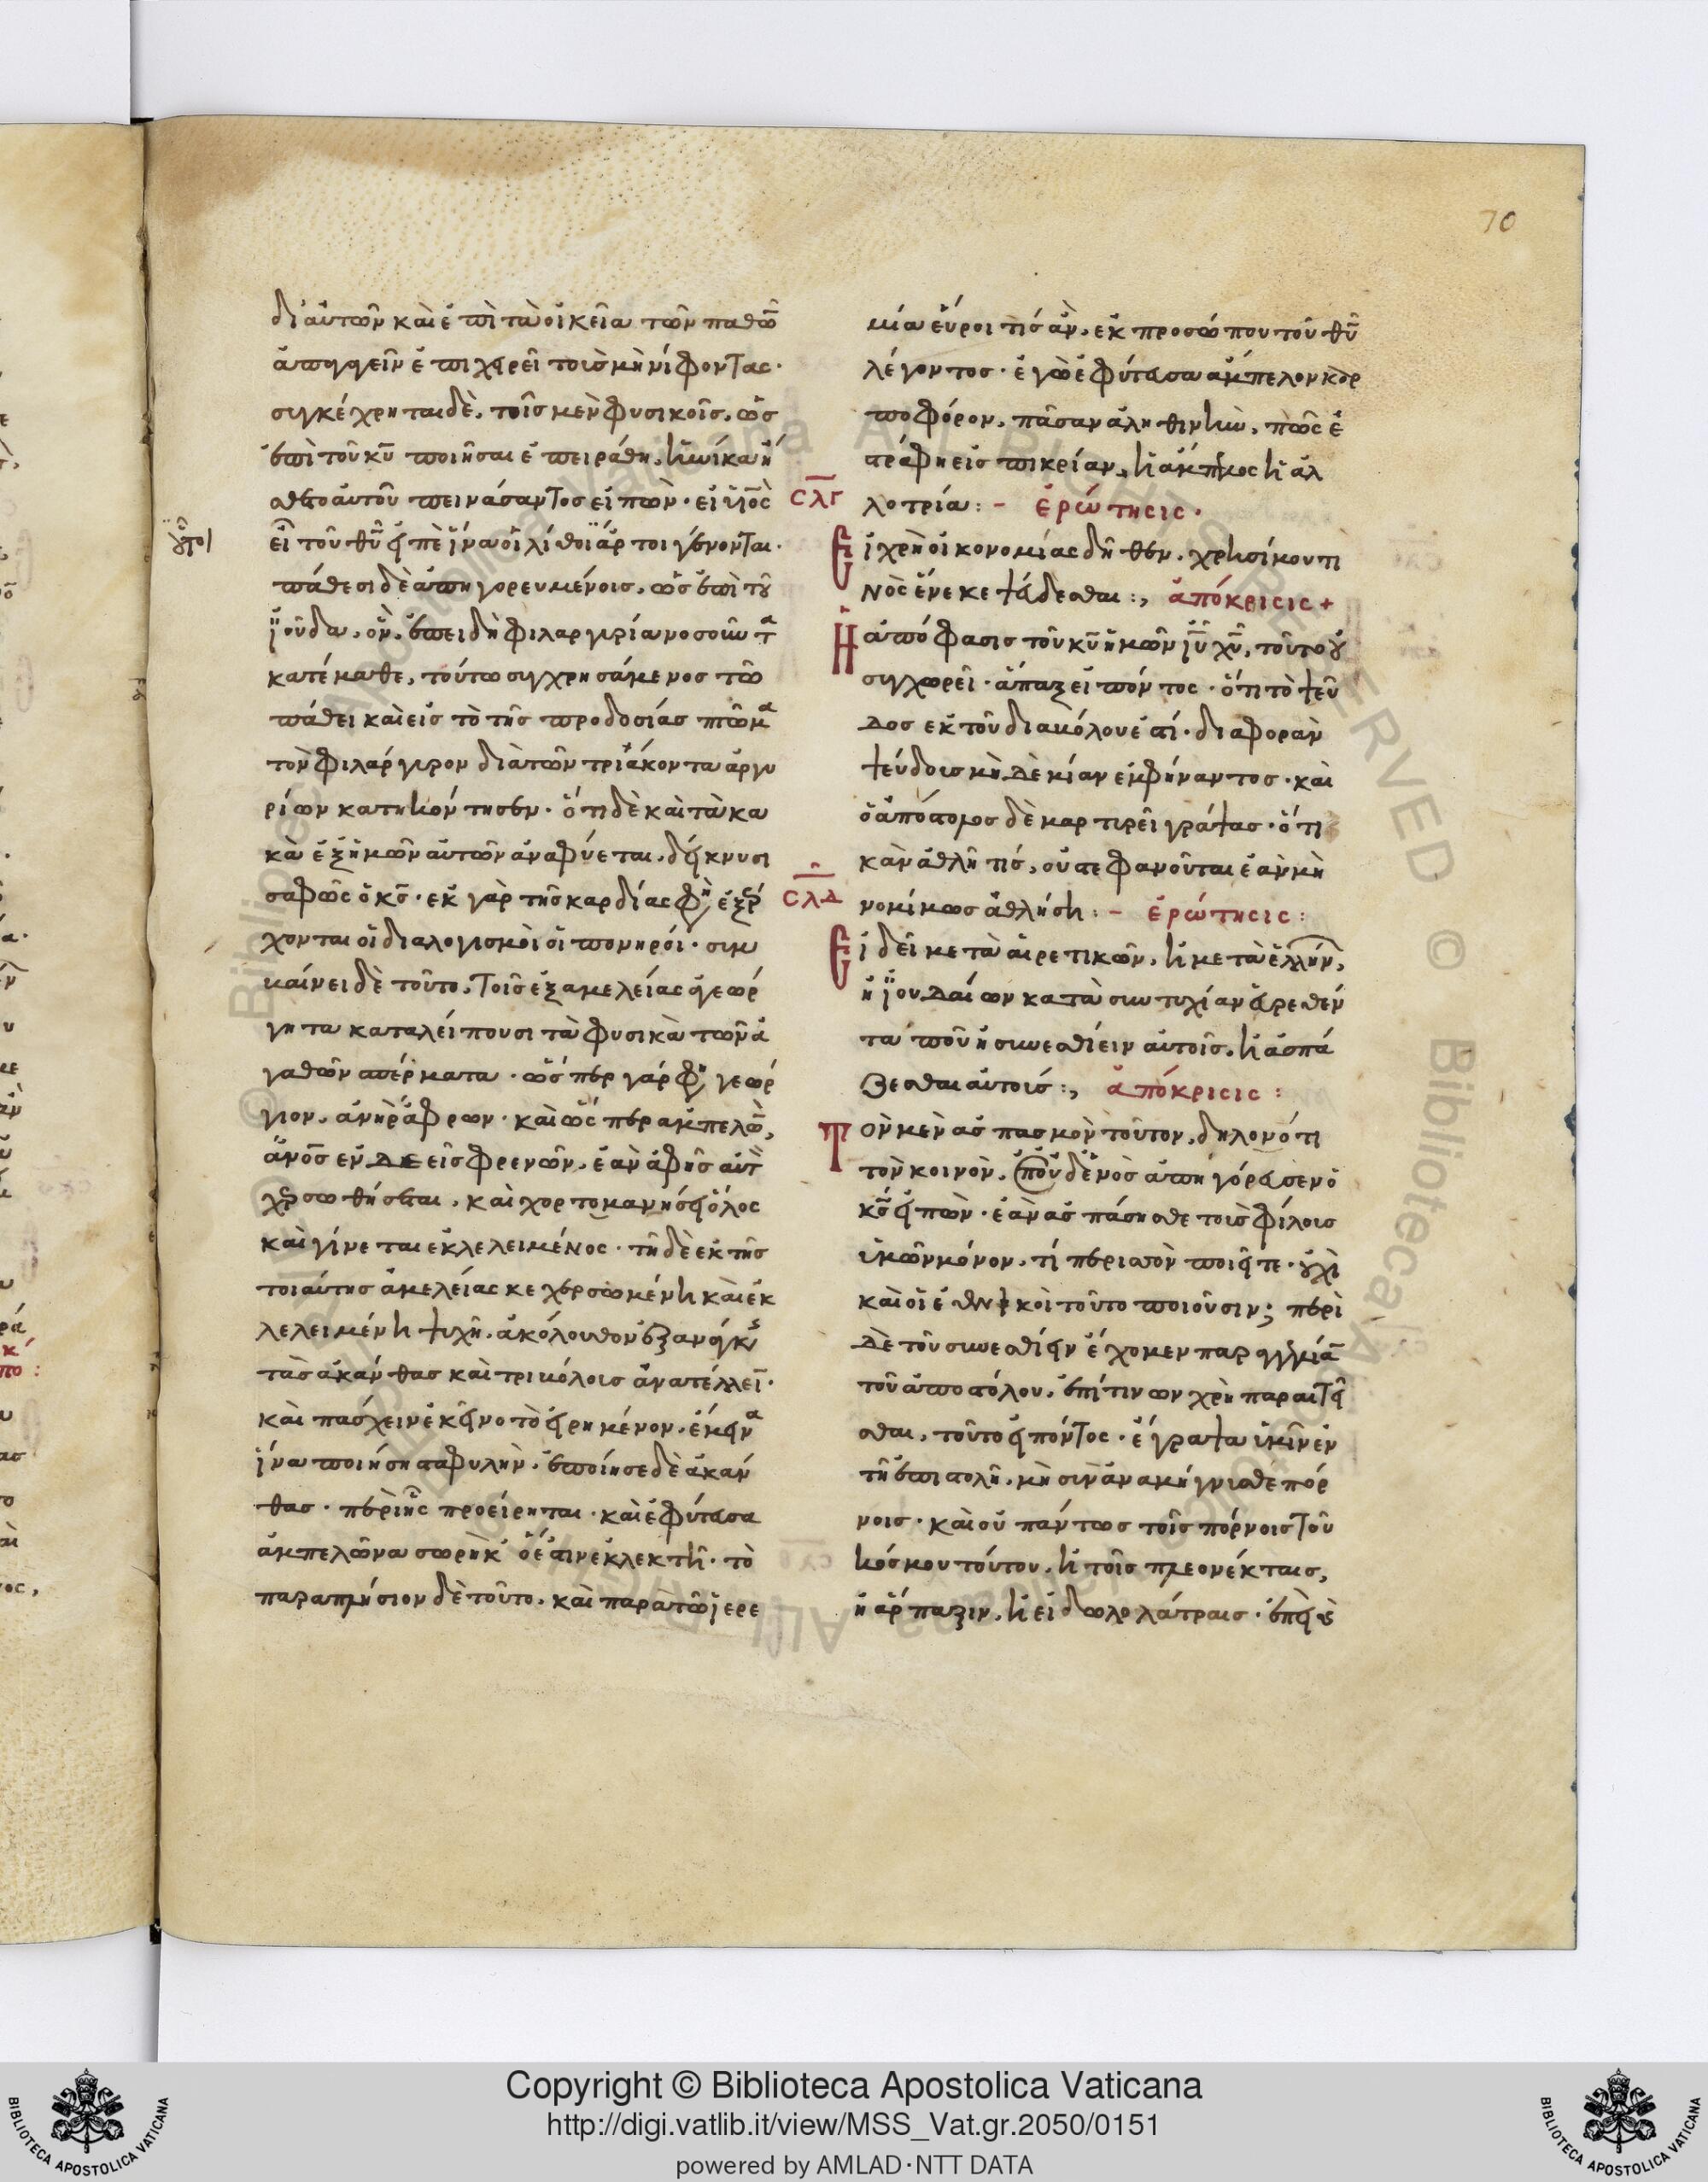 70
δι' αὐτῶν καὶ ἐπὶ τὰ οἰκεῖα τῶν παθῶ
ἀπαγαγεῖν ἐπιχειρεῖ τοὺς μὴ νήφοντας·
συγκέχρηται δὲ, τοῖς μὲν φυσικοῖς, ὡς
ἐπὶ τοῦ κυ ποιῆσαι ἐπειράθη, ἡνίκα ἤ
σθετο αὐτοῦ πεινάσαντος εἰπὼν· εἰ υἱὸς
εἶ τοῦ θυ εἰπὲ ἵνα οἱ λίθοι ἄρτοι γένονται·
πάθεσι δὲ ἀπηγορευμένοις, ὡς ἐπὶ τοῦ
ἰούδα, ὃν, ἐπειδὴ φιλαργυρίαν νοσοῦντα
κατέμαθε, τούτω συγχρησάμενος τῶ
πάθει καὶ εἰς τὸ τῆς προδοσίας πτῶμα
τὸν φιλάργυρον διὰ τῶν τριάκοντα ἀργυ
ρίων κατηκόντησεν· ὅτι δὲ καὶ τὰ κα
κὰ ἐξ ἡμῶν αὐτῶν ἀναφύεται, δείκνυσι
σαφῶς ὁ κς· ἐκ γὰρ τῆς καρδίας φη ἐξέρ
χονται οἱ διαλογισμοὶ οἱ πονηροί· συμ
βαίνει δὲ τοῦτο, τοῖς ἐξ ἀμελείας ἀγεώρ
γητα καταλείπουσι τὰ φυσικὰ τῶν ἀ
γαθῶν σπέρματα· ὥσπερ γάρ φη γεώρ
γιον, ἀνὴρ ἄφρων· καὶ ὥσπερ ἀμπελὼ,
ἄνος ἐνδεεῖς φρενῶν, ἐὰν ἀφῆς αὐτ
χερσωθήσεται, καὶ χορτομανήσει ὅλος
καὶ γίνεται ἐκλελειμένος· τῆ δὲ ἐκ τῆς
τοιαύτης ἀμελείας κεχερσωμένη καὶ ἐκ
λελειμένη ψυχῆ, ἀκόλουθον ἐξ ἀνάγκης
τὰς ἀκάνθας καὶ τριβόλοις ἀνατέλλει·
καὶ πάσχειν ἐκεῖνο τὸ εἰρημένον, ἔμεινα
ἵνα ποιήση σταφυλὴν, ἐποίησε δὲ ἀκάν
θας· περὶ ἧς προείρηται· καὶ ἐφύτευσα
ἀμπελῶνα σωρὴκ ὅ ἐστιν ἐκλεκτὴ· τὸ
παραπλήσιον δὲ τοῦτο, καὶ παρὰ τῶ ἰερε
μία εὕροι τίς ἂν, ἐκ προσώπου τοῦ θυ
λέγοντος· ἐγὼ ἐφύτευσα ἄμπελον καρ
ποφόρον, πᾶσαν ἀληθινὴν, πῶς ἐ
στράφη εἰς πικρίαν, ἡ ἄμπελος ἡ ἀλ
σλγ
λοτρία:- ἐρώτησις·
Εἰ χρὴ οἰκονομίας δῆθεν, χρησίμου τι
νὸς ἕνεκε ψεύδεσθαι:, ἀπόκρισις+
Ἡ ἀπόφασις τοῦ κυ ἡμῶν ἰυ χυ, τοῦτο οὐ
συγχωρεῖ· ἅπαξ εἰπόντος· ὅτι τὸ ψεῦ
δος ἐκ τοῦ διαβόλου ἐστί· διαφορὰν
ψεύδους μὴ δὲ μίαν ἐμφήναντος· καὶ
ὁ ἀπόστολος δὲ μαρτυρεῖ γράψας· ὅτι
κἂν ἀθλῆ τις, οὐ στεφανοῦται ἐὰν μὴ
σλδ
νομίμως ἀθλήση:- ἐρώτησις:
Εἰ δεῖ μετὰ αἱρετικῶν, ἢ μετὰ ἑλλήν,
ἢ ἰουδαίων κατὰ συντυχίαν εὑρεθέν
τα που ἢ συνεσθίειν αὐτοῖς, ἢ ἀσπά
ζεσθαι αὐτοῖς:, ἀπόκρισις:
Τὸν μὲν ἀσπασμὸν τοῦτον, δηλονότι
τὸν κοινὸν, ἀπ' οὐδενὸς ἀπηγόρευσεν ὁ
κς εἰπὼν· ἐὰν ἀσπάσησθε τοὺς φίλους
ὑμῶν μόνον, τί περισσὸν ποιεῖτε· οὐχὶ
καὶ οἱ ἐθνικοὶ τοῦτο ποιοῦσιν; περὶ
δὲ τοῦ συνεσθίειν ἔχομεν παραγγελίαν
τοῦ ἀποστόλου, ἐπί τινων χρὴ παραιτεῖ
σθαι, τοῦτο εἰπόντος· ἔγραψα ὑμῖν ἐν
τῆ ἐπιστολῆ, μὴ συναναμίγνυσθε πόρ
νοις· καὶ οὐ πάντως τοῖς πόρνοις τοῦ
κόσμου τούτου, ἢ τοῖς πλεονέκταις,
ἢ ἅρπαξιν, ἢ εἰδωλολάτραις· ἐπεὶ
Copyright © Biblioteca Apostolica Vaticana
http://digi.vatlib.it/view/MSS_Vat.gr.2050/0151
powered by AMLAD·NTT DATA
BIBLIOTECA APOSTOLICA VATICANA
BIBLIOTECA APOSTOLICA VATICANA